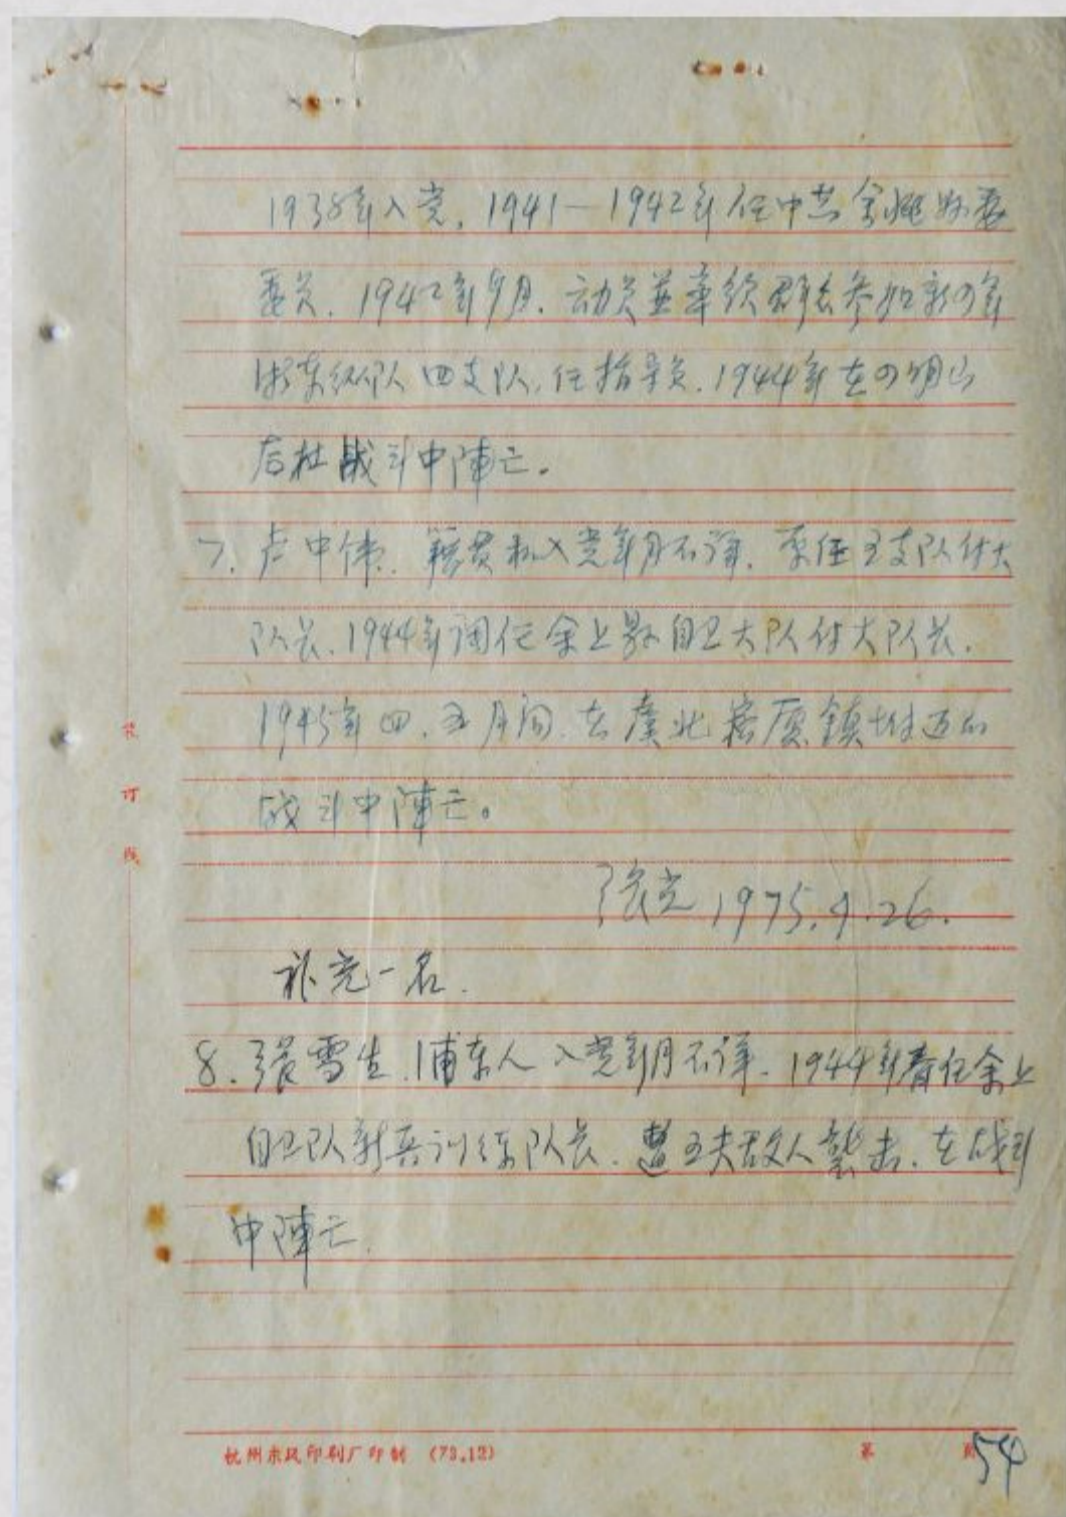 1938年入党，1941—1942年任中共余姚县委
委员，1942年9月，动员并率领群众参加新四军
浙东纵队四支队，任指导员，1944年在四明山
后杜战斗中陣亡。
7. 卢中伟，籍贯和入党年月不详，原任五支队付大
队长，1944年调任余上县自卫大队付大队长，
1945年四、五月间，在虞北崧厦鎮附近的
战斗中陣亡。
张光 1975.9.26.
补充一名.
8. 張雪生，浦东人 入党年月不详，1944年春任余上
自卫队新兵训练队长，遭 敌人襲击，在战斗
中陣亡.
装
订
线
杭州东风印刷厂印制 (73.12)
第 页 54